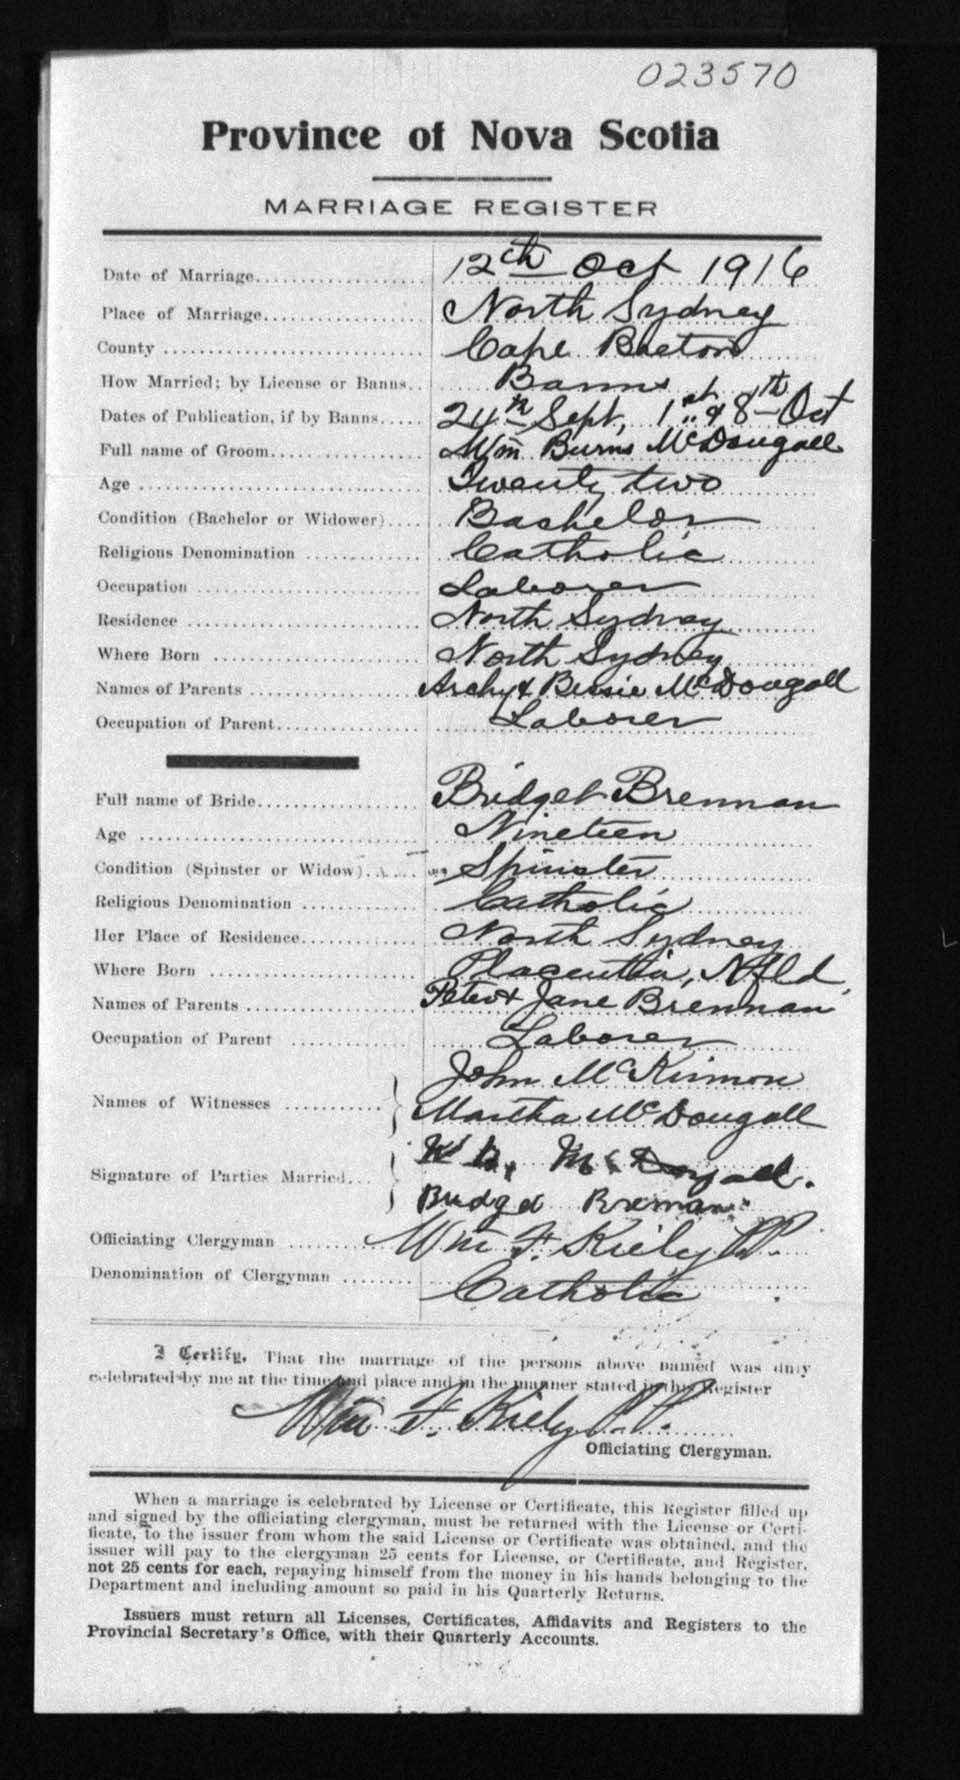 023570
Province of Nova Scotia
MARRIAGE REGISTER
Date of Marriage.................... 12th Oct 1916
Place of Marriage.................... North Sydney
County .............................. Cape Breton
How Married; by License or Banns.. Banns
Dates of Publication, if by Banns..... 24th Sept, 1st & 8th Oct
Full name of Groom.................. Wm Burns McDougall
Age ................................. Twenty two
Condition (Bachelor or Widower).... Bachelor
Religious Denomination .............. Catholic
Occupation .......................... Laborer
Residence ........................... North Sydney
Where Born ........................ North Sydney
Names of Parents .................... Archy & Bessie McDougall
Occupation of Parent................. Laborer
Full name of Bride................... Bridget Brennan
Age ................................. Nineteen
Condition (Spinster or Widow)...... Spinster
Religious Denomination .............. Catholic
Her Place of Residence.............. North Sydney
Where Born ........................ Placentia, Nfld.
Names of Parents .................... Peter & Jane Brennan
Occupation of Parent ............... Laborer
John McKinnon
Names of Witnesses ...........
Martha McDougall
W B. McDougall.
Signature of Parties Married...
Bridget
Officiating Clergyman ......... Wm F. Kiely P.P.
Denomination of Clergyman ........ Catholic
I Certify, That the marriage of the persons above named was duly
celebrated by me at the time and place and in the manner stated in this Register
Wm F. Kiely P.P.
Officiating Clergyman.
When a marriage is celebrated by License or Certificate, this Register filled up
and signed by the officiating clergyman, must be returned with the License or Certi-
ficate, to the issuer from whom the said License or Certificate was obtained, and the
issuer will pay to the clergyman 25 cents for License, or Certificate, and Register,
not 25 cents for each, repaying himself from the money in his hands belonging to the
Department and including amount so paid in his Quarterly Returns.
Issuers must return all Licenses, Certificates, Affidavits and Registers to the
Provincial Secretary's Office, with their Quarterly Accounts.